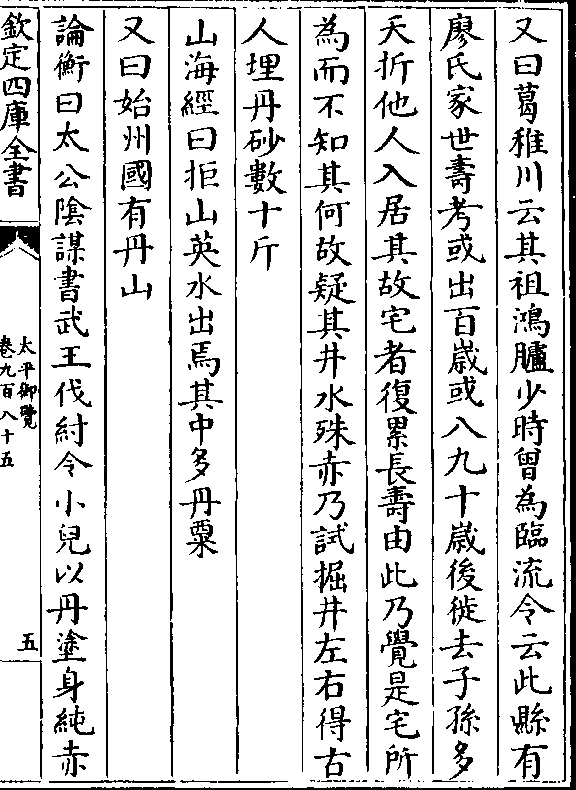 又曰葛稚川云其祖鴻臚少時曾為臨流令云此縣有
廖氏家世壽考或出百歲或八九十歲後徙去子孫多
夭折他人入居其故宅者復累長壽由此乃覺是宅所
為而不知其何故疑其井水殊赤乃試掘井左右得古
人埋丹砂數十斤
山海經曰拒山英水出焉其中多丹粟
又曰始州國有丹山
論衡曰太公陰謀書武王伐紂令小兒以丹塗身純赤
欽定四庫全書
太平御覽
卷九百八十五
五